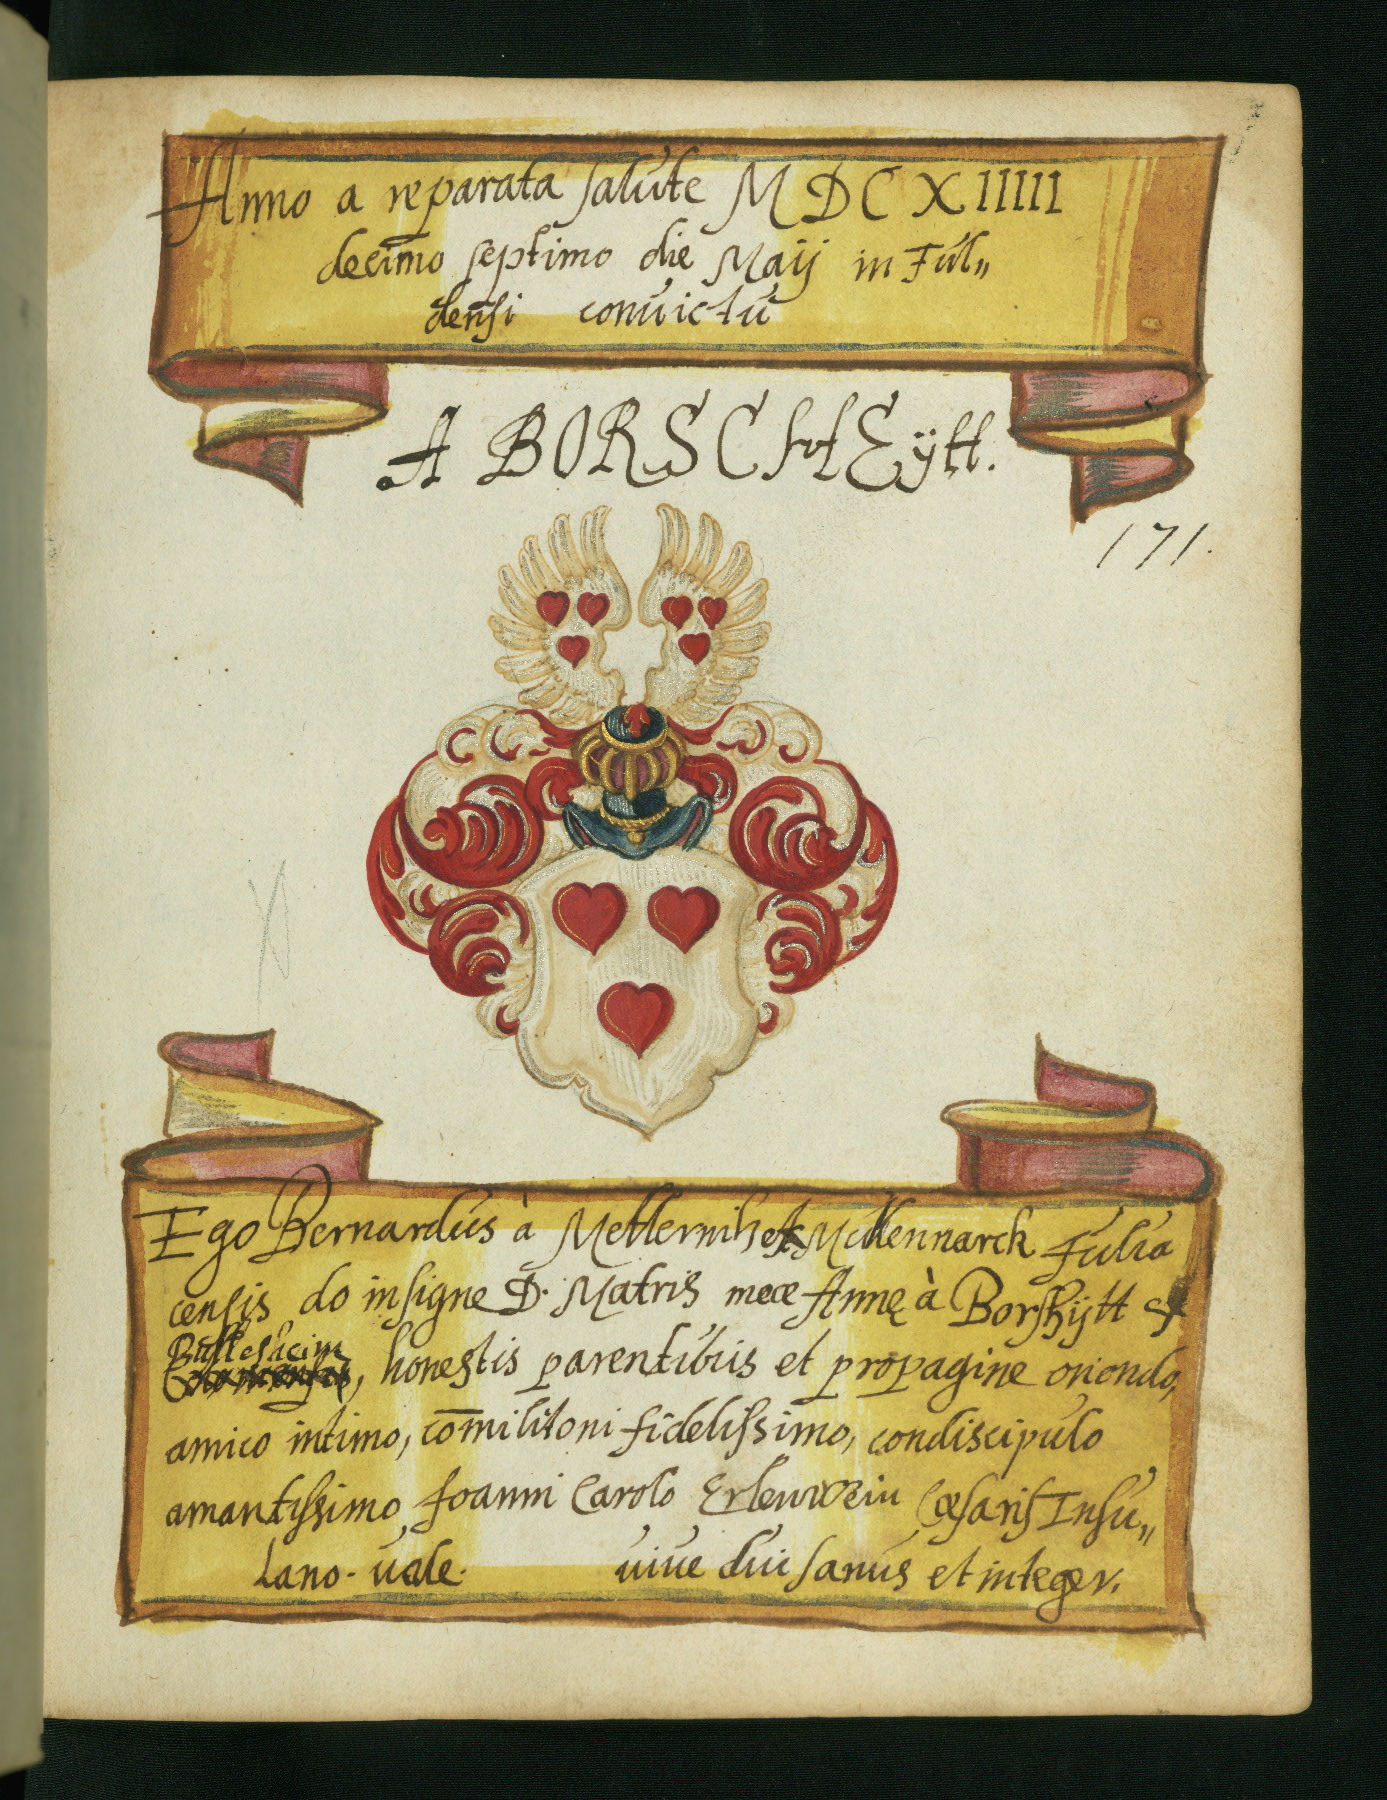 Anno a reparata salute MDCXIIIII
decimo septimo die Maij in Ful„
densi convictu
A BORSCHEÿtt.
171.
Ego Bernardus à Metternih et Müllennarck Iulia
censis do insigne D. Matris meæ Annę à Borshÿtt
Bullesheim
honestis parentibus et propagine oriondo,
amico intimo, com̄ilitoni fidelissimo, condiscipulo
amantissimo Joanni Carolo Erlenwein Cæsaris Insu„
lano. vale. vive diu sanus et integer.